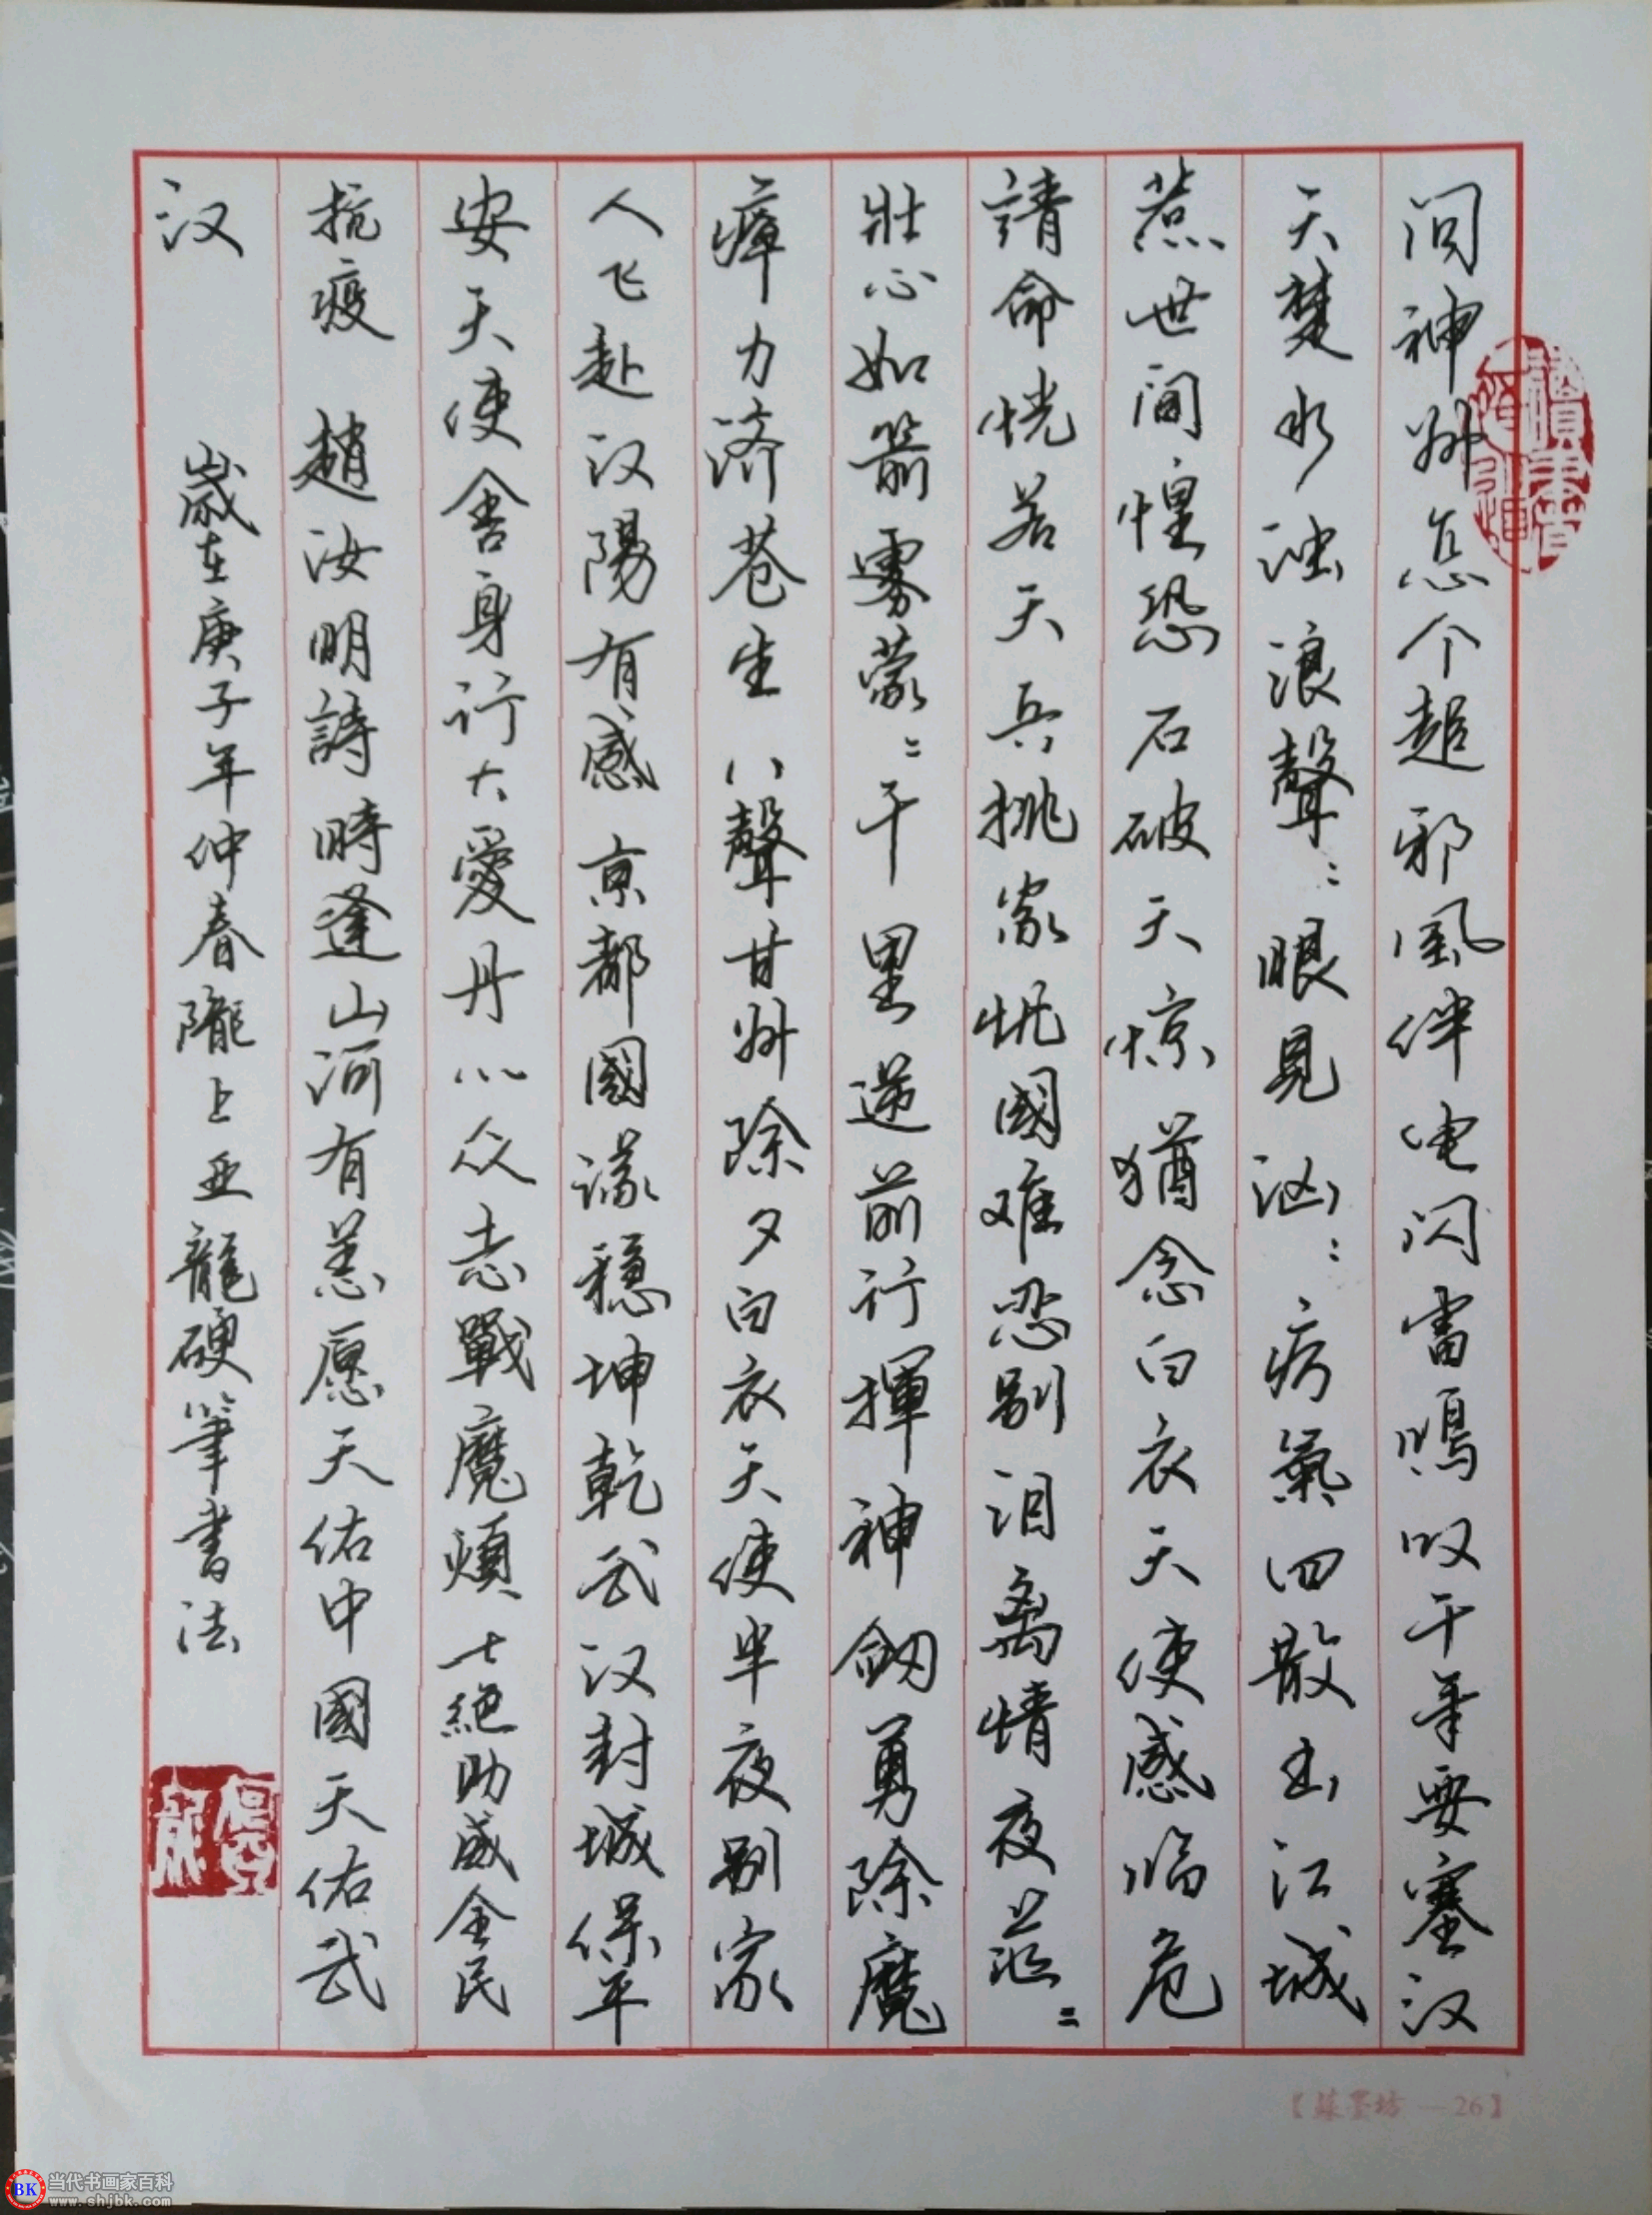 问神州怎个起邪風伴电闪雷鳴叹千年要塞汉
天楚水浊浪聲:眼見汹:疠氣四散出江城
惹世间惶恐石破天惊猶念白衣天使感临危
請命恍若天兵挑家忧國难恐别泪离情夜
壮心如箭雾蒙:千里逆前行揮神劒勇除魔
瘴力济苍生八聲甘州除夕白衣天使半夜别家
人飞赴汉陽有感京都國議穏坤乾武汉封城保平
安天使舍身行大愛丹心众志戰魔煩七絕助威全民
抗疫趙汝明詩時逢山河有恙愿天佑中國天佑武
汉歲在庚子年仲春隴上亚龍硬筆書法
【藤墨坊—26】
BK 当代书画家百科
www.shjbk.com